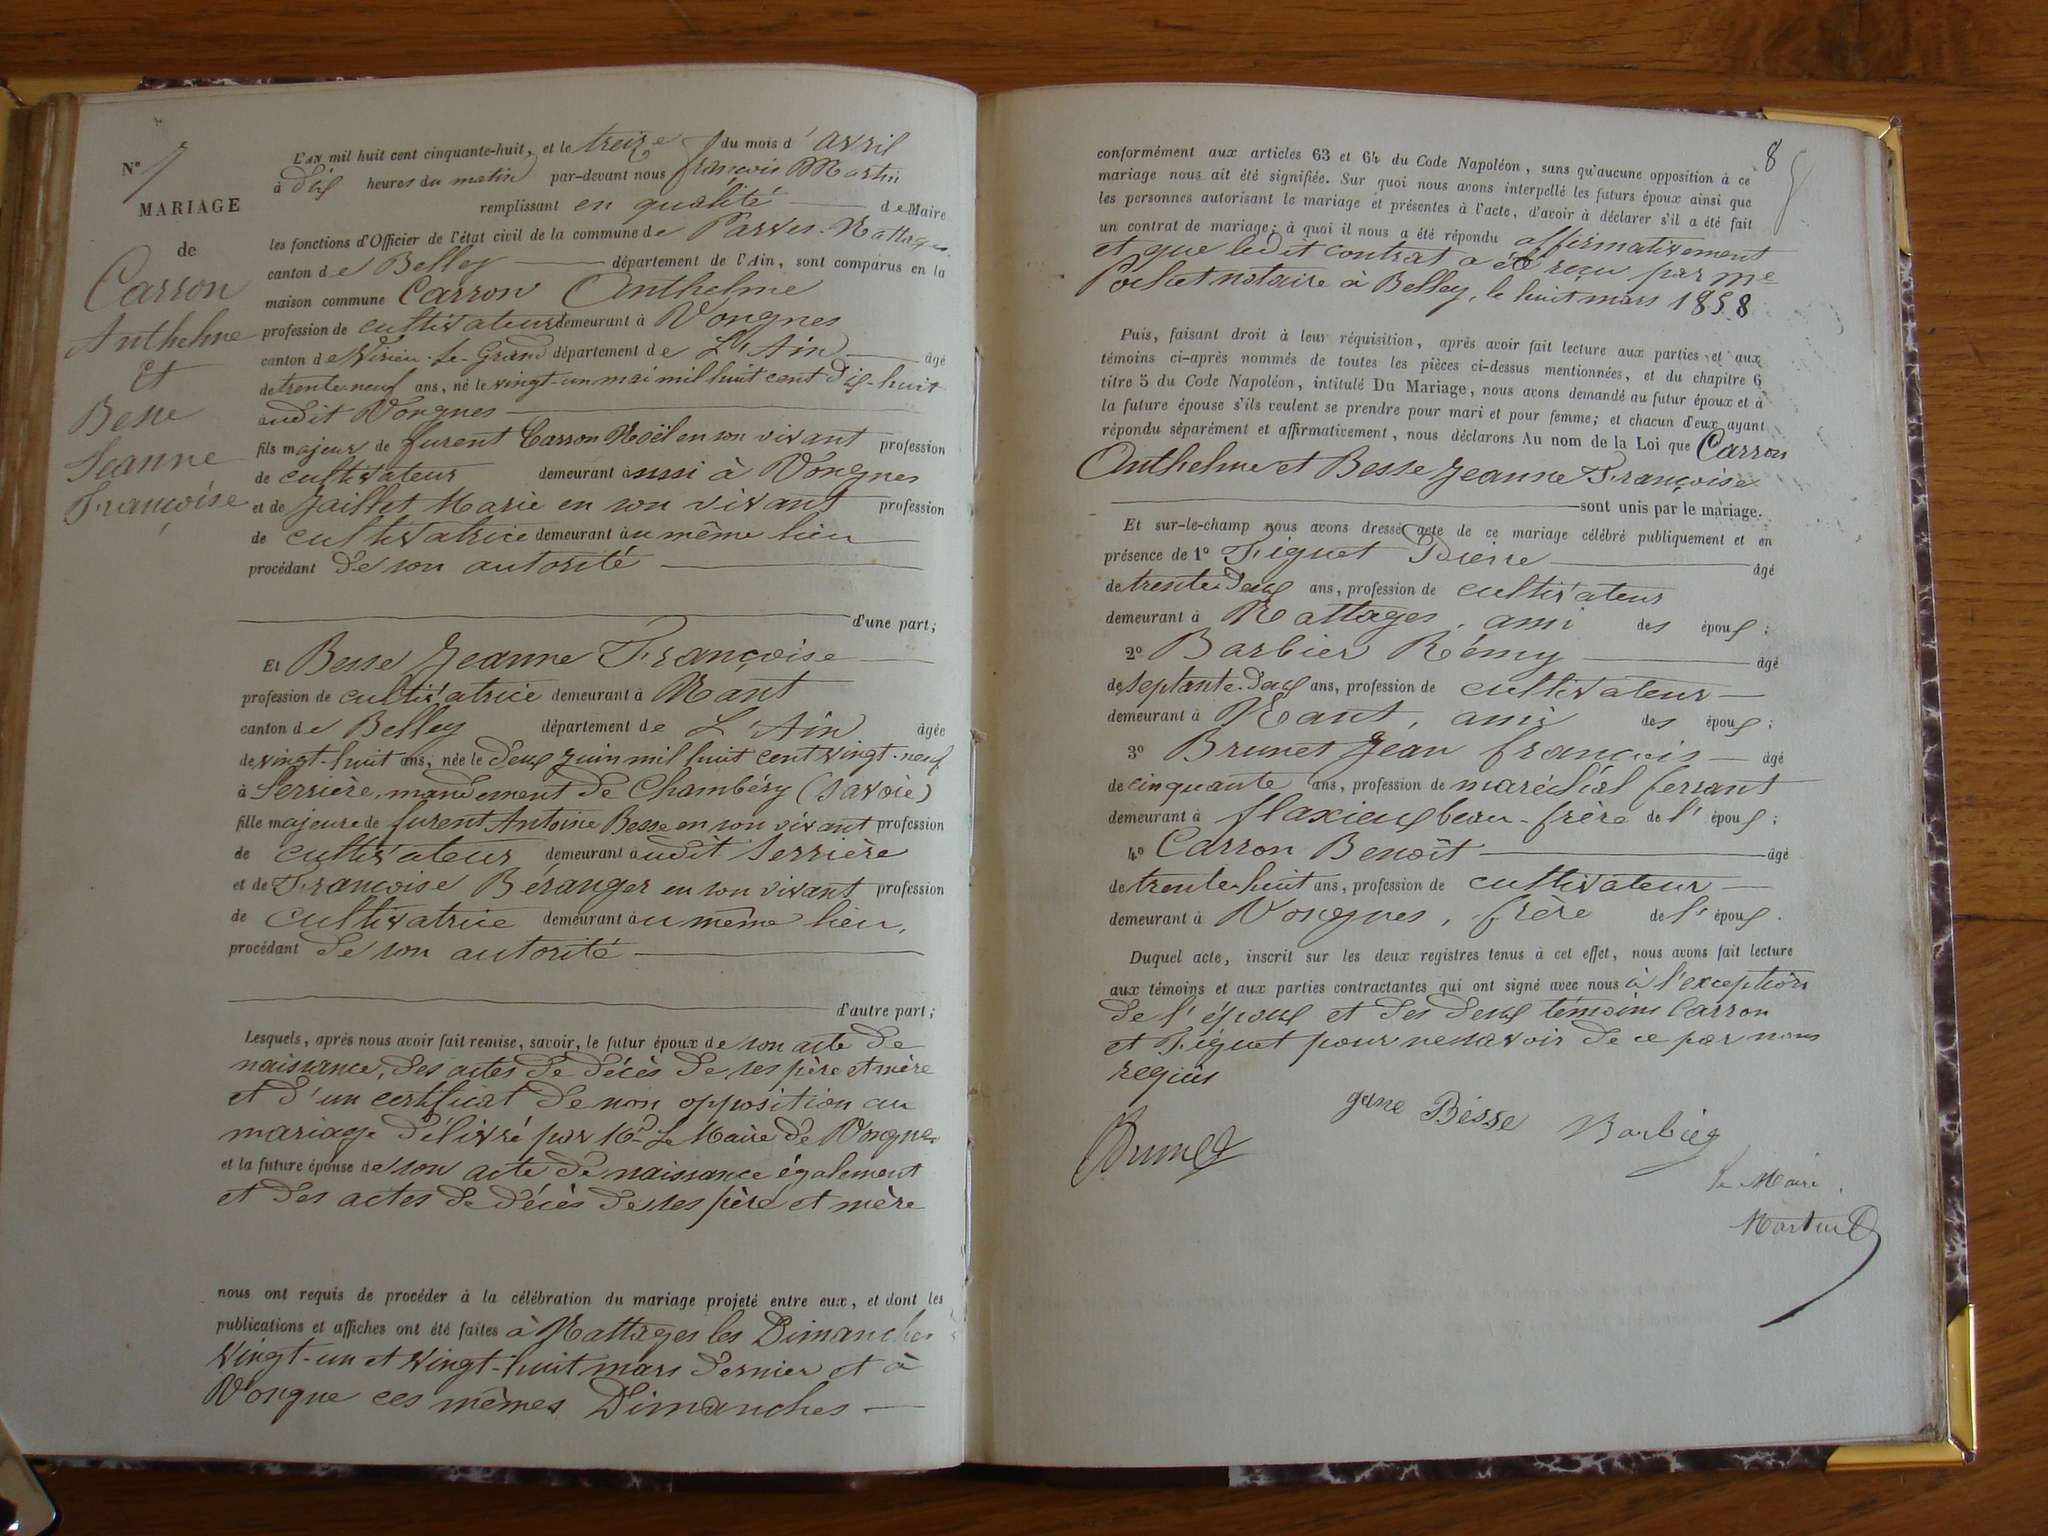 N° 7
MARIAGE
de
Carron
Anthelme
Et
Besse
Jeanne
Françoise
L'AN mil huit cent cinquante-huit, et le treize du mois d'avril
à dix heures du matin par-devant nous françois Martin
remplissant en qualité de Maire
les fonctions d'Officier de l'état civil de la commune de Parves-Nattages
canton de Belley département de l'Ain, sont comparus en la
maison commune Carron Anthelme
profession de cultivateur demeurant à Vongnes
canton de Virieu-le-Grand département de L'Ain âgé
de trente-neuf ans, né le vingt-un mai mil huit cent dix-huit
audit Vongnes
fils majeur de furent Carron Noël en son vivant profession
de cultivateur demeurant aussi à Vongnes
et de Jaillet Marie en son vivant profession
de cultivatrice demeurant au même lieu
procédant de son autorité
d'une part;
Et Besse Jeanne Françoise
profession de cultivatrice demeurant à Nant
canton de Belley département de L'Ain âgée
de vingt-huit ans, née le deux juin mil huit cent vingt-neuf
à Serrière, mandement de Chambéry (Savoie)
fille majeure de furent Antoine Besse en son vivant profession
de cultivateur demeurant audit Serrière
et de Françoise Béranger en son vivant profession
de cultivatrice demeurant au même lieu,
procédant de son autorité
d'autre part;
Lesquels, après nous avoir fait remise, savoir, le futur époux de son acte de
naissance, des actes de décès de ses père et mère
et d'un certificat de non opposition au
mariage délivré par Mr Le Maire de Vongnes
et la future épouse de son acte de naissance également
et des actes de décès de ses père et mère
nous ont requis de procéder à la célébration du mariage projeté entre eux, et dont les
publications et affiches ont été faites à Nattages les Dimanches
vingt-un et vingt-huit mars dernier et à
Vongne ces mêmes Dimanches
8
conformément aux articles 63 et 64 du Code Napoléon, sans qu'aucune opposition à ce
mariage nous ait été signifiée. Sur quoi nous avons interpellé les futurs époux ainsi que
les personnes autorisant le mariage et présentes à l'acte, d'avoir à déclarer s'il a été fait
un contrat de mariage; à quoi il nous a été répondu affirmativement
et que ledit contrat a été reçu par Me
notaire à Belley, le huit mars 1858
Puis, faisant droit à leur réquisition, après avoir fait lecture aux parties et aux
témoins ci-après nommés de toutes les pièces ci-dessus mentionnées, et du chapitre 6
titre 5 du Code Napoléon, intitulé Du Mariage, nous avons demandé au futur époux et à
la future épouse s'ils veulent se prendre pour mari et pour femme; et chacun d'eux ayant
répondu séparément et affirmativement, nous déclarons Au nom de la Loi que Carron
Anthelme et Besse Jeanne Françoise
sont unis par le mariage.
Et sur-le-champ nous avons dressé acte de ce mariage célébré publiquement et en
présence de 1° Figuet Pierre âgé
de trente-deux ans, profession de cultivateur
demeurant à Nattages, ami des époux;
2° Barbier Rémy âgé
de septante-deux ans, profession de cultivateur
demeurant à Nant, ami des époux;
3° Brunet Jean françois âgé
de cinquante ans, profession de maréchal ferrant
demeurant à flaxieux beau-frère de l'époux;
4° Carron Benoît âgé
de trente-huit ans, profession de cultivateur
demeurant à Vongnes, frère de l'époux.
Duquel acte, inscrit sur les deux registres tenus à cet effet, nous avons fait lecture
aux témoins et aux parties contractantes qui ont signé avec nous à l'exception
de l'époux et des deux témoins Carron
et Figuet pour ne savoir de ce par nous
requis
Brunet gane Bésse Barbier
Le Maire
Martin